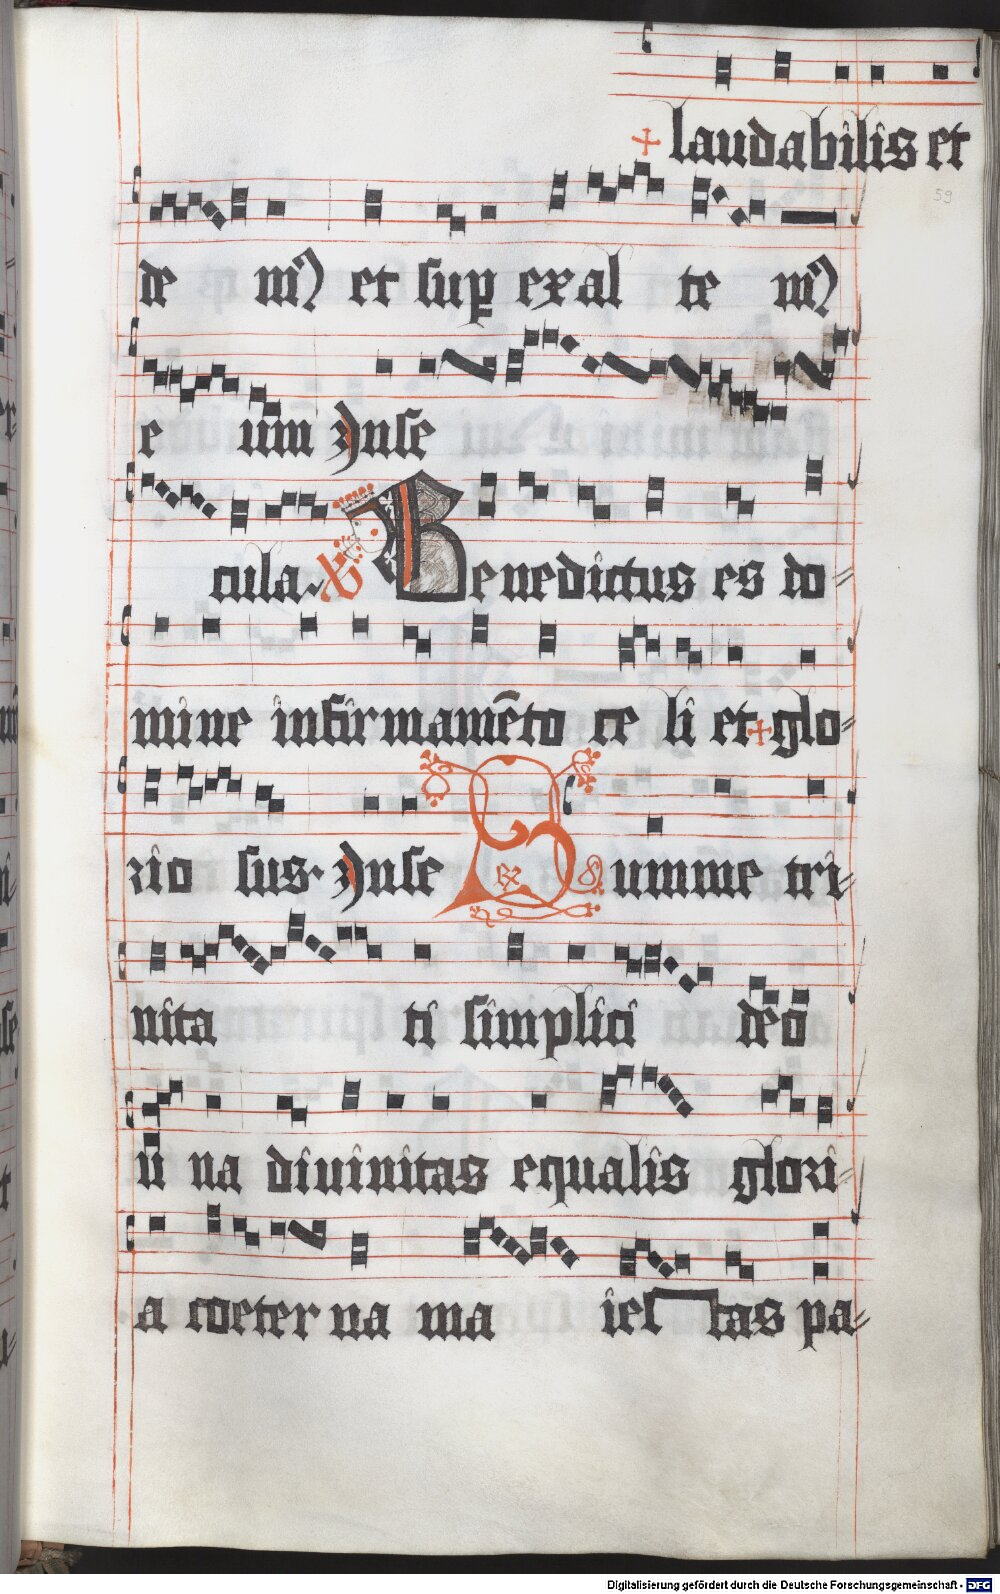 + laudabilis et
59
de m᷒ et sup exal te m᷒
e um Jnse
cula. ℣ Benedictus es do=
mine infirmamēto ce li et + glo=
rio sus. Jnse ℟ Summe tri=
nita ti simplici deo
u na diuinitas equalis glori=
a coeter na ma ies tas pa=
Digitalisierung gefördert durch die Deutsche Forschungsgemeinschaft - DFG